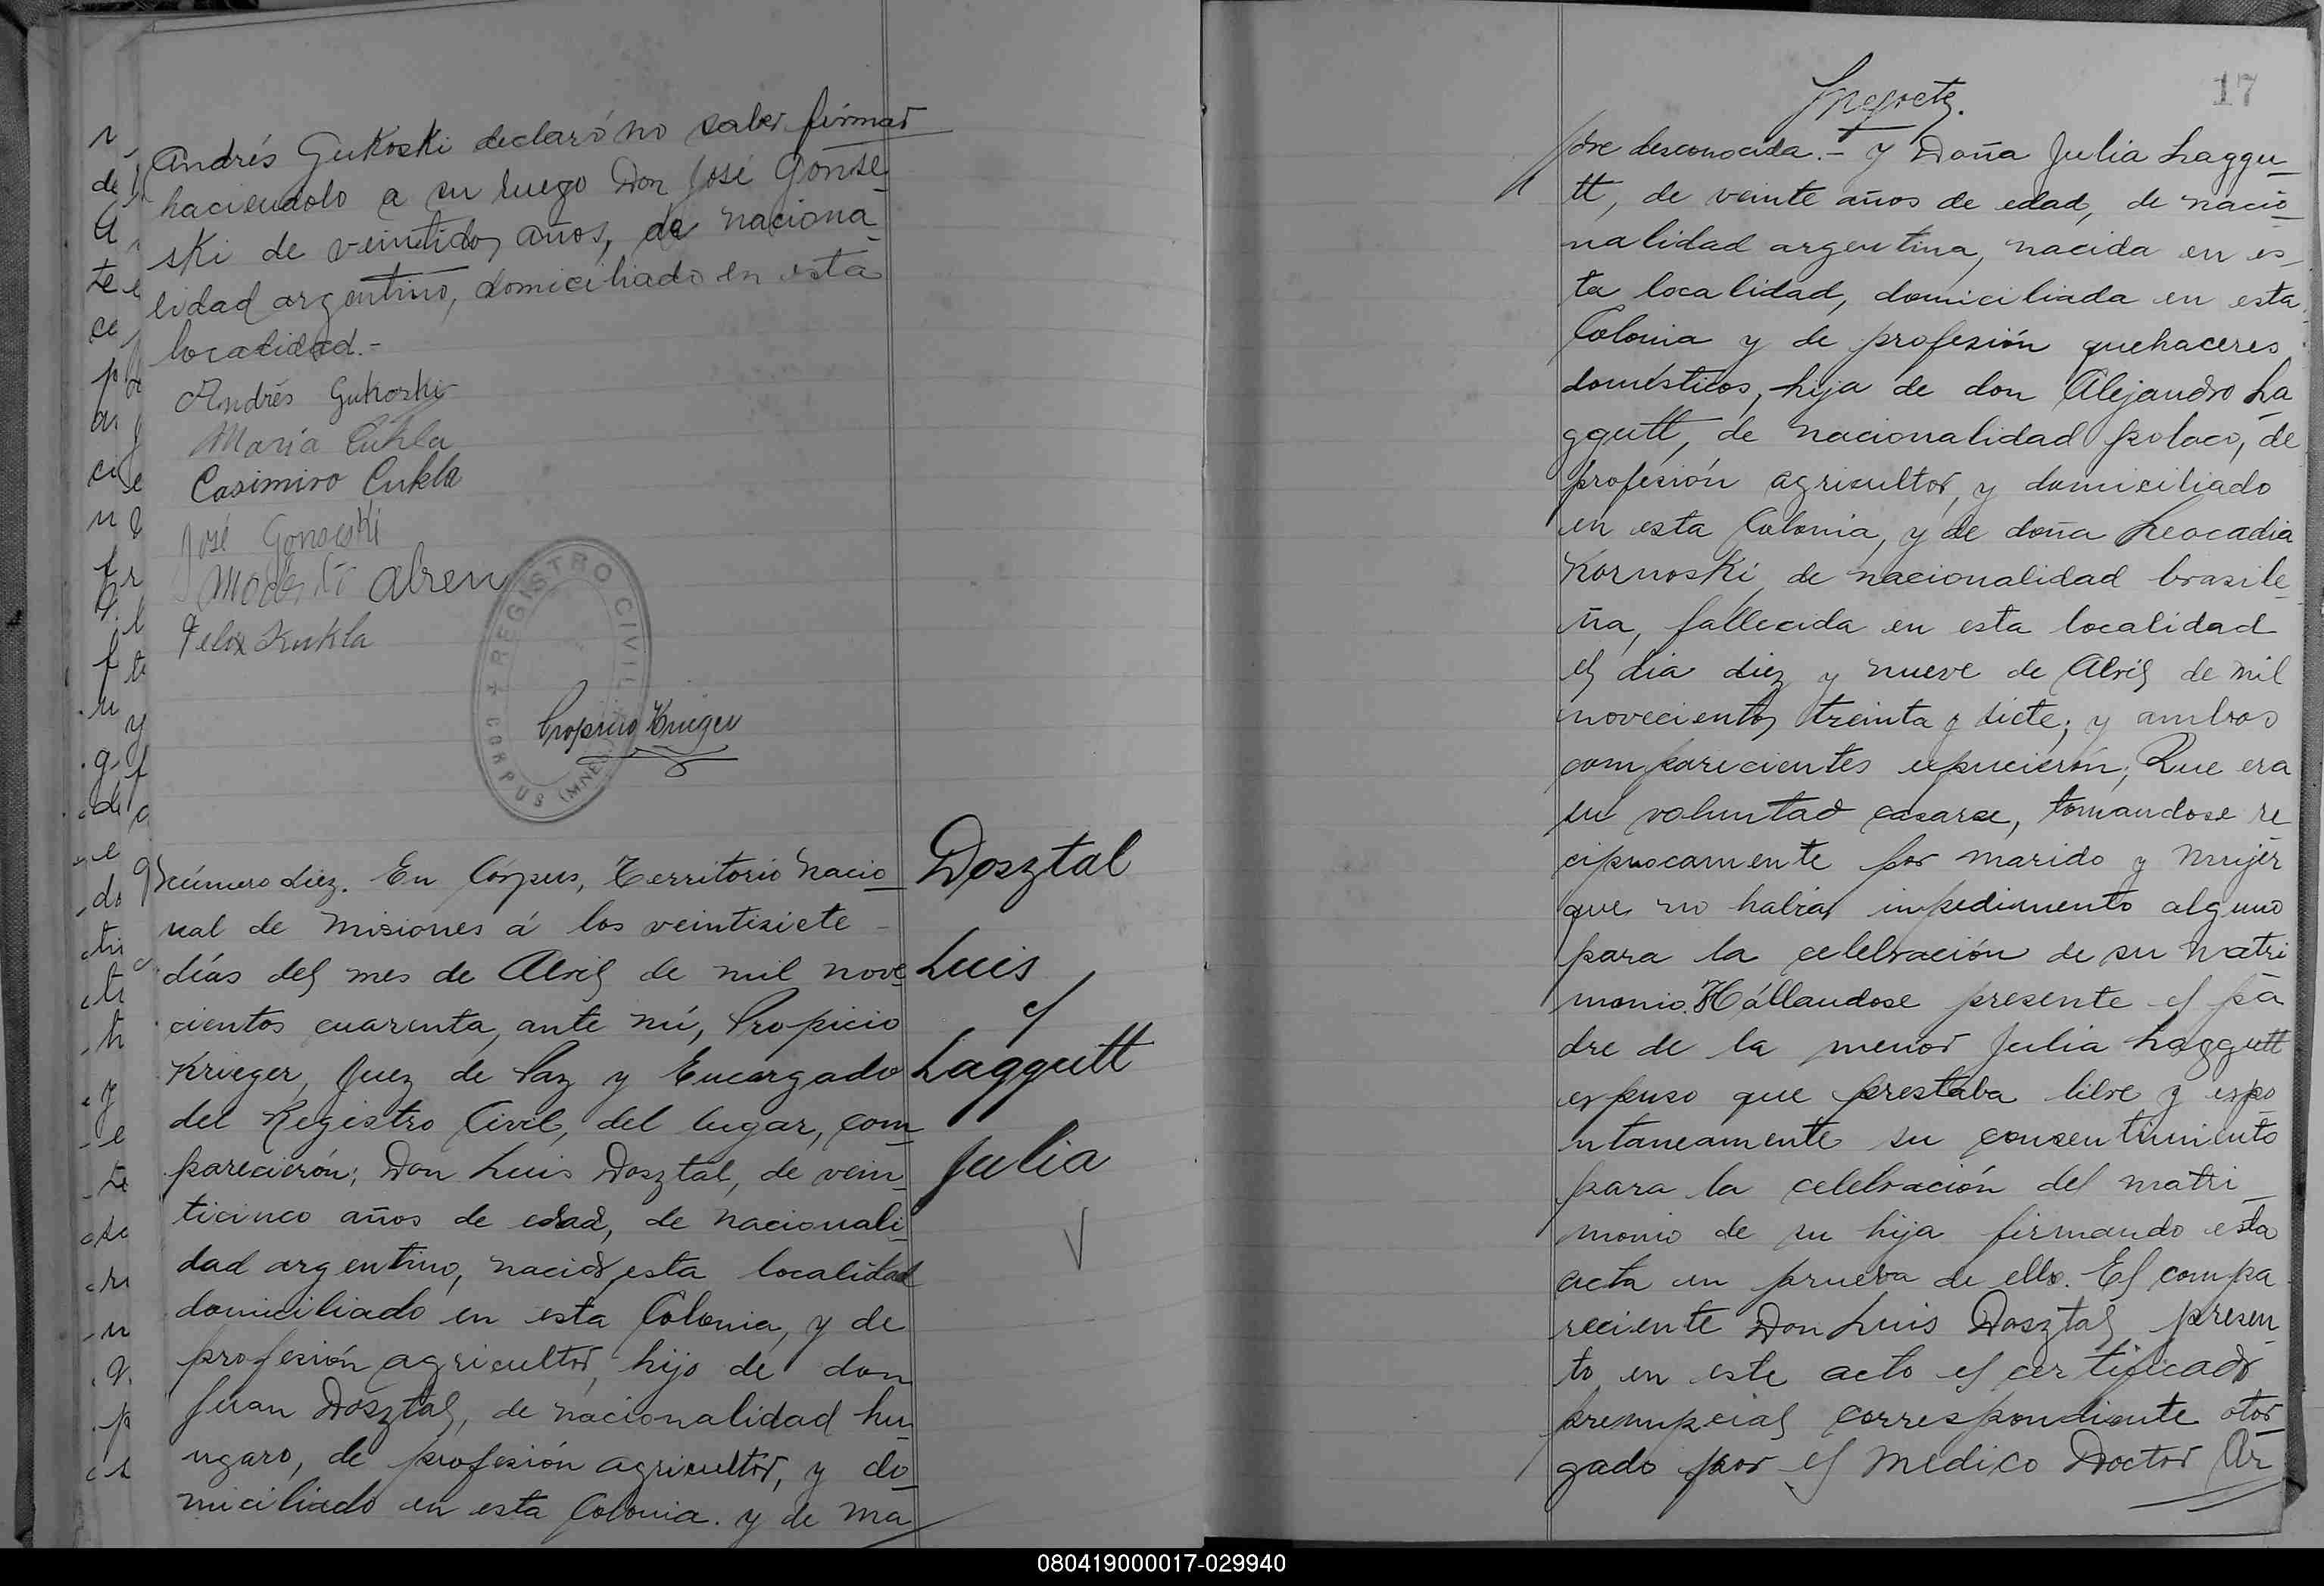 Andrés Gukoski declaró no saber firmar
haciendolo a su ruego Don José Gonse
ski de veintidos años, de naciona
lidad argentino, domiciliado en esta
localidad.-
Andrés Gukoski
Maria Cukla
Casimiro Cukla
José Gonseski
Modesto Abreu
Felix Kukla
REGISTRO CIVIL
CORPUS (MNES)
Propicio Krieger
Número diez. En Córpus, Territorio Nacio
nal de Misiones á los veintisiete
días del mes de Abril de mil nove
cientos cuarenta, ante mí, Propicio
Krieger, Juez de Paz y Encargado
del Registro Civil, del lugar, com
parecierón; Don Luis Dosztal, de vein
ticinco años de edad, de nacionali
dad argentino, nacido esta localidad
domiciliado en esta Colonia, y de
profesión agricultor, hijo de don
Juan Dosztal, de nacionalidad hu
ngaro, de profesión agricultor, y do
miciliado en esta Colonia. y de ma
Dosztal
Luis
y
Laggutt
Julia
17
dre desconocida.- y Doña Julia Laggu
tt, de veinte años de edad, de nacio
nalidad argentina, nacida en es
ta localidad, domiciliada en esta
Colonia y de profesión quehaceres
domésticos, hija de don Alejandro La
ggutt, de nacionalidad polaco, de
profesión agricultor, y domiciliado
en esta Colonia, y de doña Leocadia
Kornoski, de nacionalidad brasile
ña, fallecida en esta localidad
el dia diez y nueve de Abril de mil
novecientos treinta y siete; y ambos
comparecientes expucierón; Que era
su voluntad casarse, tomandose re
ciprocamente por marido y mujer
que no había impedimento alguno
para la celebración de su matri
monio. Hállandose presente el pa
dre de la menor Julia Laggutt
expuso que prestaba libre y espo
ntaneamente su consentimiento
para la celebración del matri
monio de su hija firmando esta
acta en prueba de ello. El compa
reciente Don Luis Dosztal presen
to en este acto el certificado
prenupcial correspondiente otor
gado por el Medico Doctor Ar
080419000017-029940